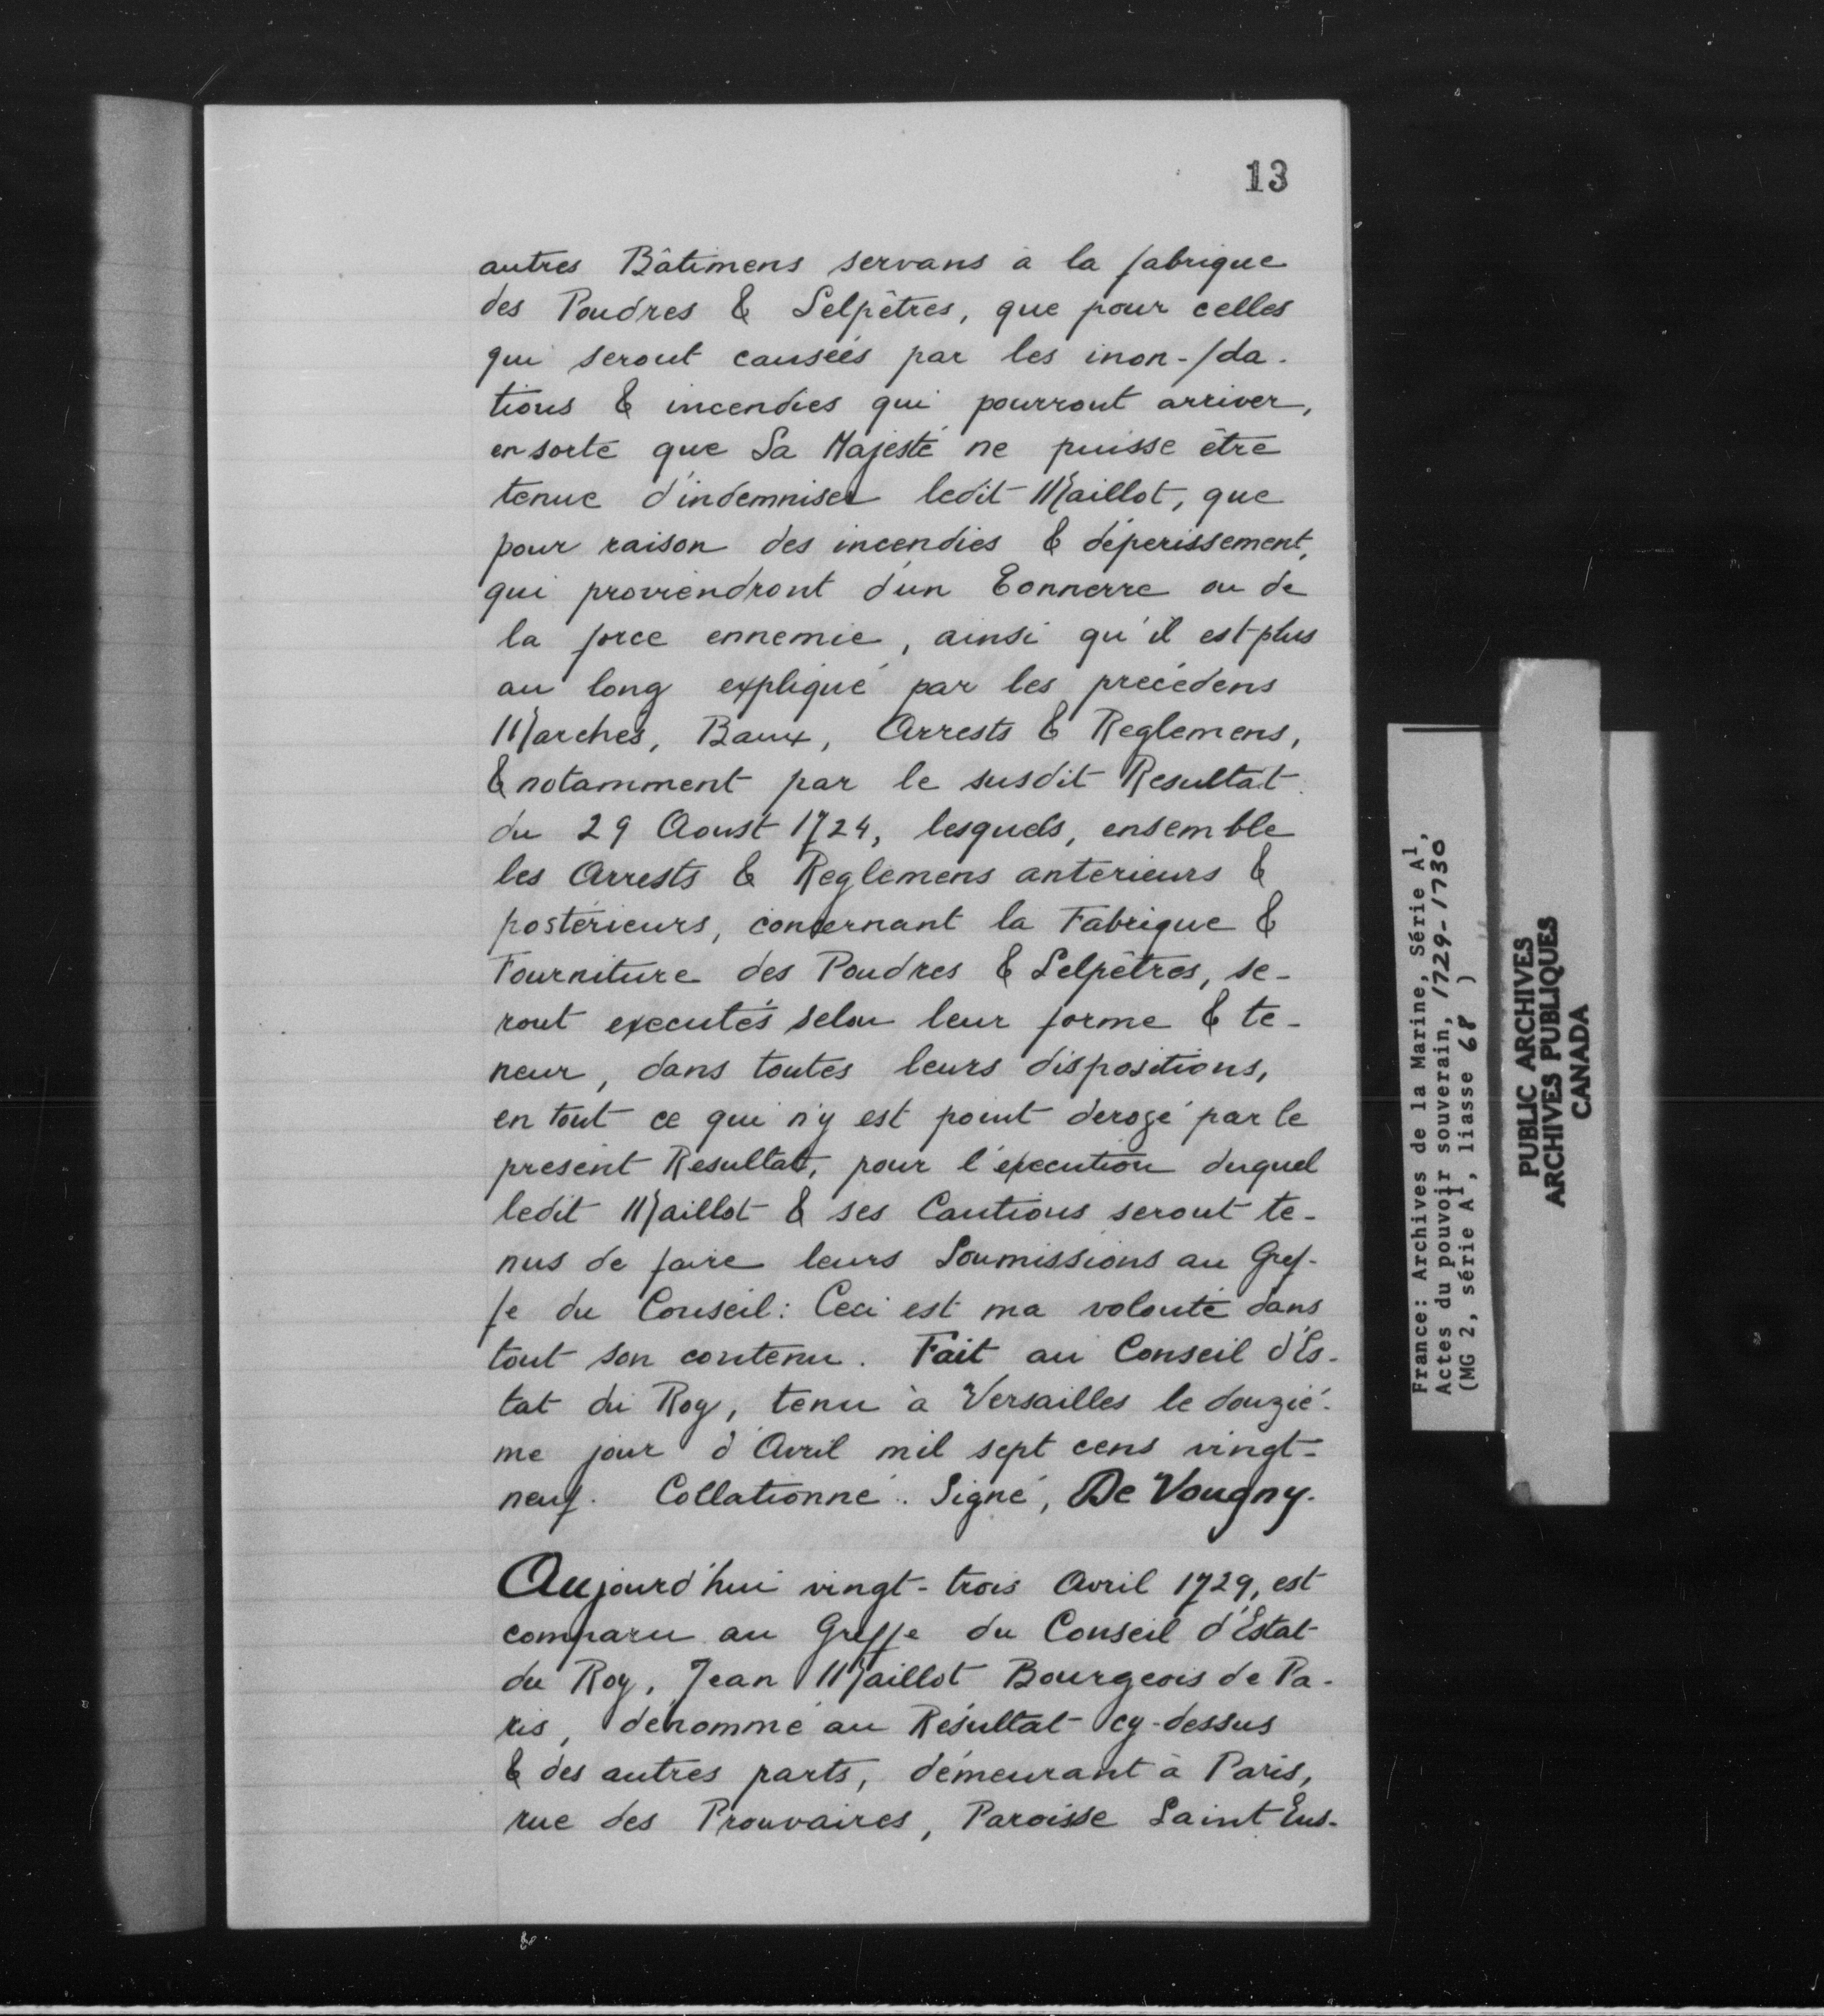 13
autres Bâtimens servans à la fabrique
des Poudres & Selpêtres, que pour celles
qui seront causées par les inon-/da-
tions & incendies qui pourront arriver,
ensorte que Sa Majesté ne puisse être
tenue d'indemniser ledit Maillot, que
pour raison des incendies & déperissement,
qui proviendront d'un Tonnerre ou de
la force ennemie, ainsi qu'il est plus
au long expliqué par les précédens
Marchés, Baux, Arrests & Reglemens,
& notamment par le susdit Resultat
du 29 Aoust 1724, lesquels, ensemble
les Arrests & Reglemens anterieurs &
postérieurs, concernant la Fabrique &
Fourniture des Poudres & Selpêtres, se-
ront executés selon leur forme & te-
neur, dans toutes leurs dispositions,
en tout ce qui n'y est point derogé par le
présent Resultat, pour l'éxecution duquel
ledit Maillot & ses Cautions seront te-
nus de faire leurs Soumissions au Gref-
fe du Conseil: Ceci est ma volonté dans
tout son contenu. Fait au Conseil d'Es-
tat du Roy, tenu à Versailles le douzié-
me jour d'Avril mil sept cens vingt-
neuf. Collationné. Signé, De Vougny.
Aujourd'hui vingt-trois Avril 1729, est
comparu au Greffe du Conseil d'Estat
du Roy, Jean Maillot Bourgeois de Pa-
ris, dénommé au Résultat cy-dessus
& des autres parts, démeurant à Paris,
rue des Prouvaires, Paroisse Saint Eus-
France: Archives de la Marine, Série A1,
Actes du pouvoir souverain, 1729-1730
(MG 2, série A1, liasse 68 )
PUBLIC ARCHIVES
ARCHIVES PUBLIQUES
CANADA